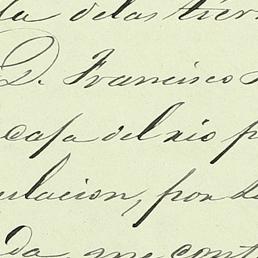 de las tier
D. Francisco
casa del rio p
ulacion, por
da que cont